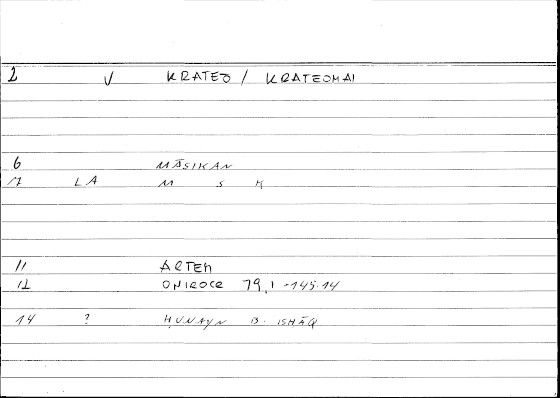 2 V KRATEŌ / KRATEOMAI
6 MĀSIKAN
7 LA M S K
11 ARTEM
12 ONIROCR 79,1 - 145.14
14 ? ḤUNAYN B. ISḤĀQ